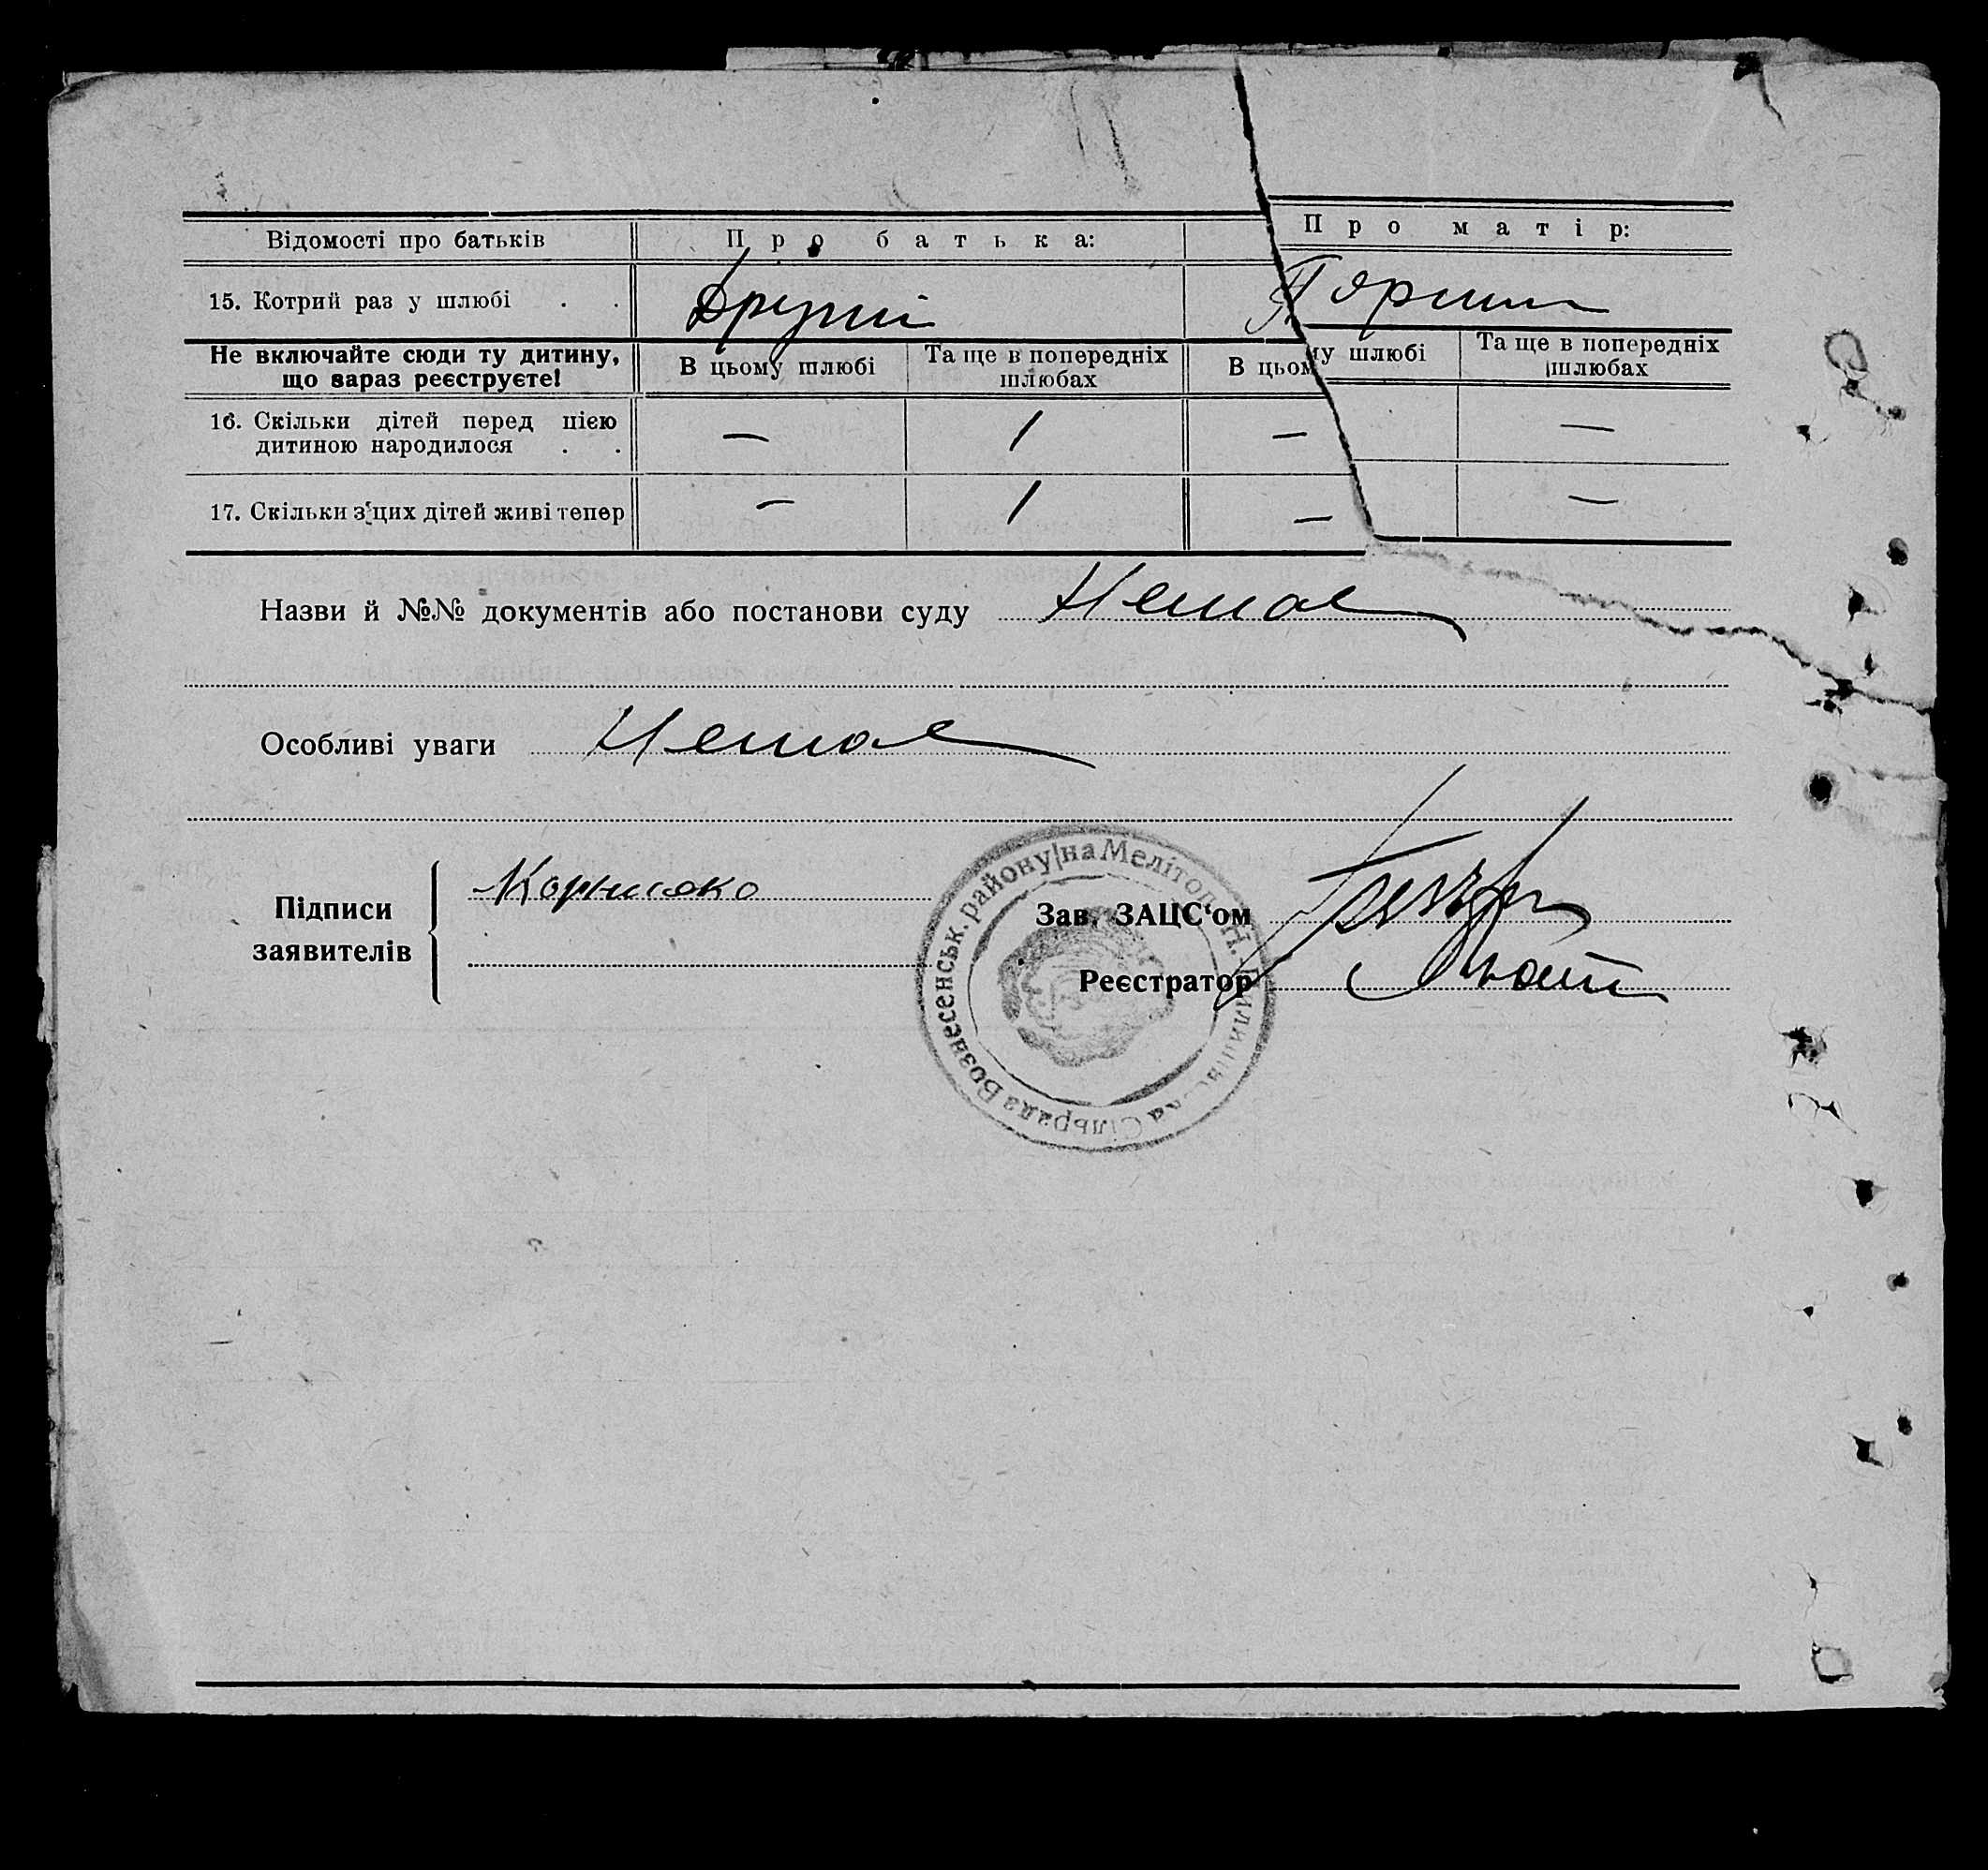 Відомості про батьків Про батька: Про матір:
15. Котрий раз у шлюбі . . Другий
Не включайте сюди ту дитину, що зараз реєструєте! В цьому шлюбі Та ще в попередніх шлюбах В цьому шлюбі Та ще в попередніх шлюбах
16. Скільки дітей перед цією
дитиною народилося . . — 1 — —
17. Скільки з цих дітей живі тепер — 1 — —
Назви й №№ документів або постанови суду Немає
Особливі уваги Немає
Підписи заявителів
Зав. ЗАЦС'ом
Реєстратор
Сільрада Вознесенськ. району на Мелітоп